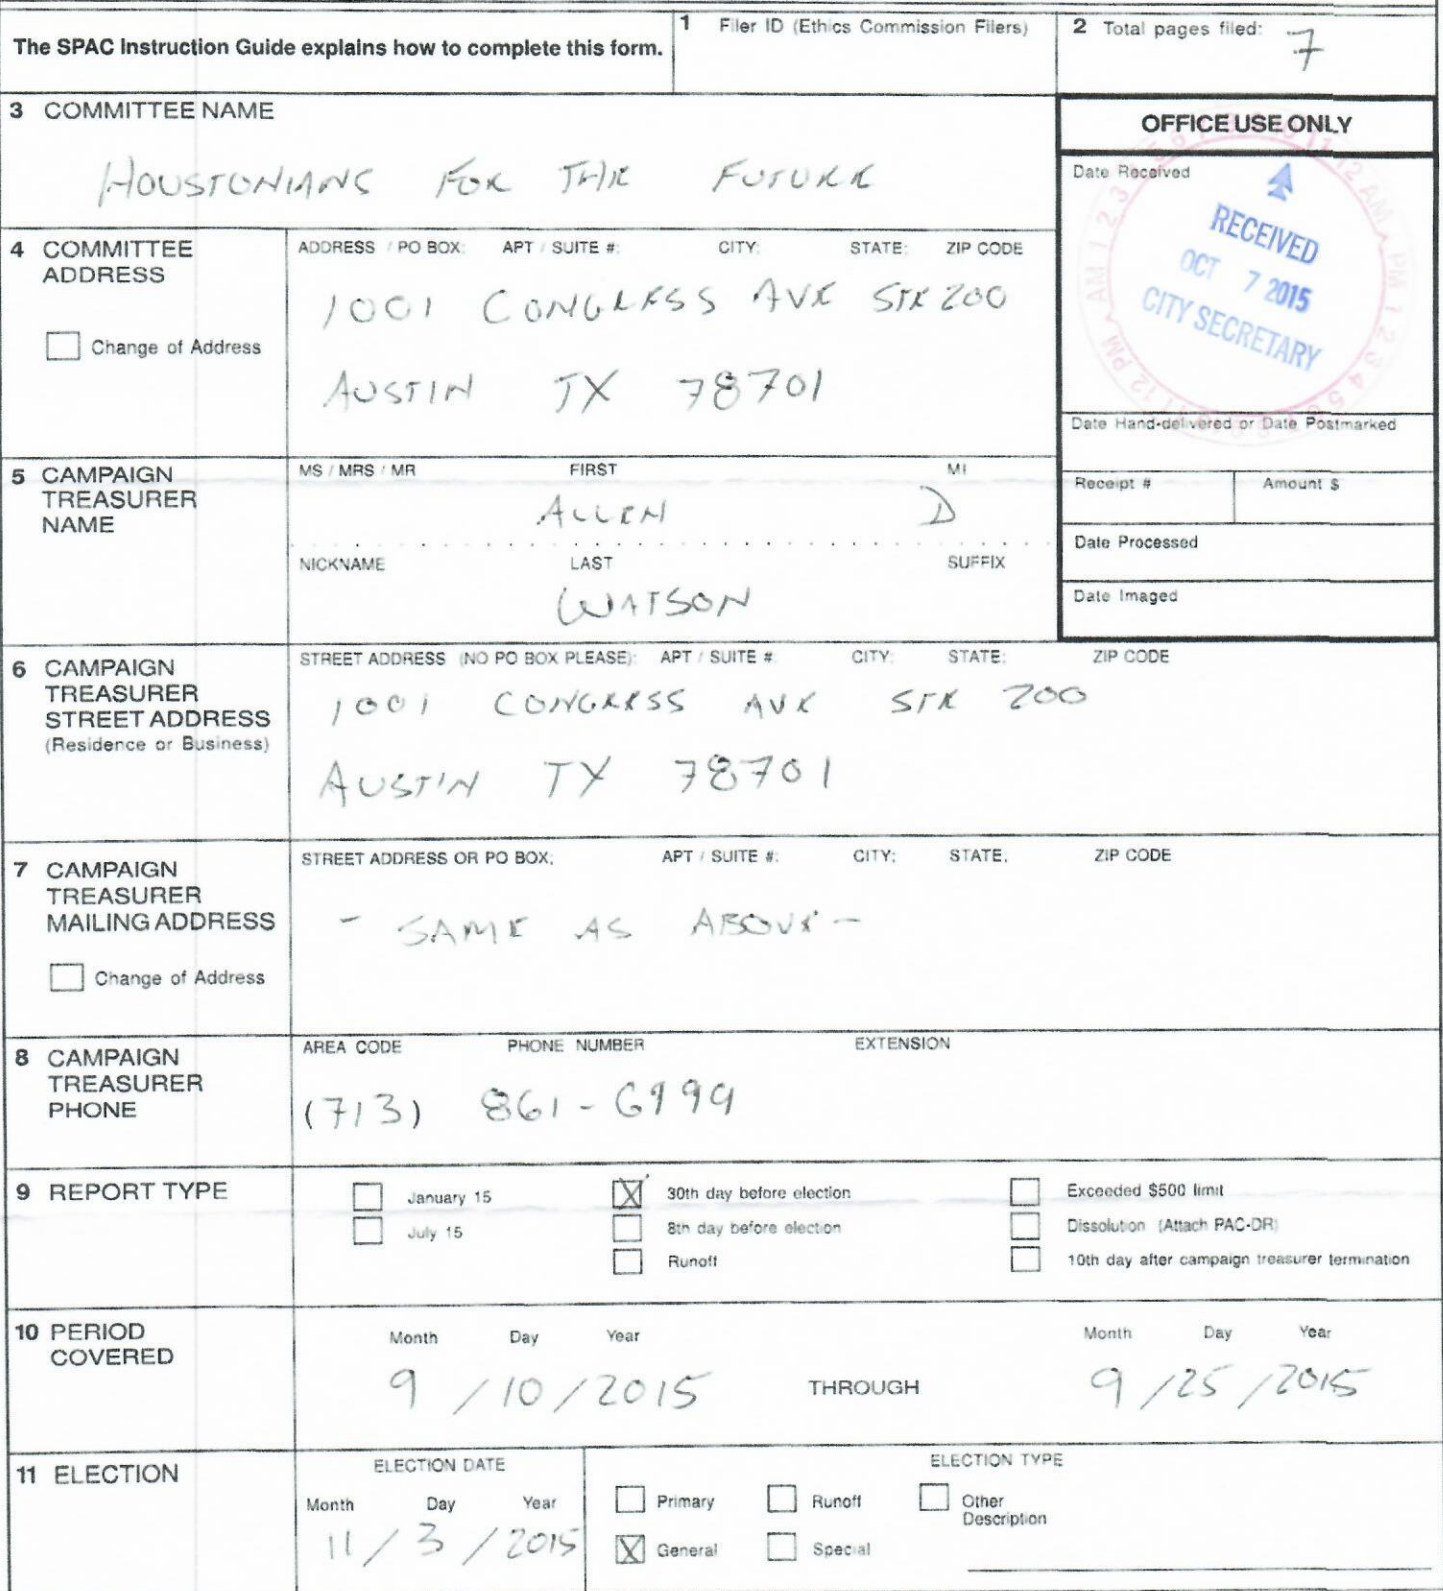 The SPAC Instruction Guide explains how to complete this form.
1 Filer ID (Ethics Commission Filers)
2 Total pages filed: 7
3 COMMITTEE NAME
HOUSTONIANS FOR THE FUTURE
OFFICE USE ONLY
Date Received
RECEIVED
OCT 7 2015
CITY SECRETARY
Date Hand-delivered or Date Postmarked
Receipt # Amount $
Date Processed
Date Imaged
4 COMMITTEE ADDRESS
Change of Address
ADDRESS / PO BOX; APT / SUITE #; CITY; STATE; ZIP CODE
1001 CONGRESS AVE STE 200
AUSTIN TX 78701
5 CAMPAIGN TREASURER NAME
MS / MRS / MR FIRST MI
ALLEN D
NICKNAME LAST SUFFIX
WATSON
6 CAMPAIGN TREASURER STREET ADDRESS
(Residence or Business)
STREET ADDRESS (NO PO BOX PLEASE); APT / SUITE #; CITY; STATE; ZIP CODE
1001 CONGRESS AVE STE 200
AUSTIN TX 78701
7 CAMPAIGN TREASURER MAILING ADDRESS
Change of Address
STREET ADDRESS OR PO BOX; APT / SUITE #; CITY; STATE; ZIP CODE
- SAME AS ABOVE -
8 CAMPAIGN TREASURER PHONE
AREA CODE PHONE NUMBER EXTENSION
(713) 861-6999
9 REPORT TYPE
January 15
July 15
X 30th day before election
8th day before election
Runoff
Exceeded $500 limit
Dissolution (Attach PAC-DR)
10th day after campaign treasurer termination
10 PERIOD COVERED
Month Day Year
9 / 10 / 2015
THROUGH
Month Day Year
9 / 25 / 2015
11 ELECTION
ELECTION DATE
Month Day Year
11 / 3 / 2015
ELECTION TYPE
Primary Runoff Other Description
X General Special